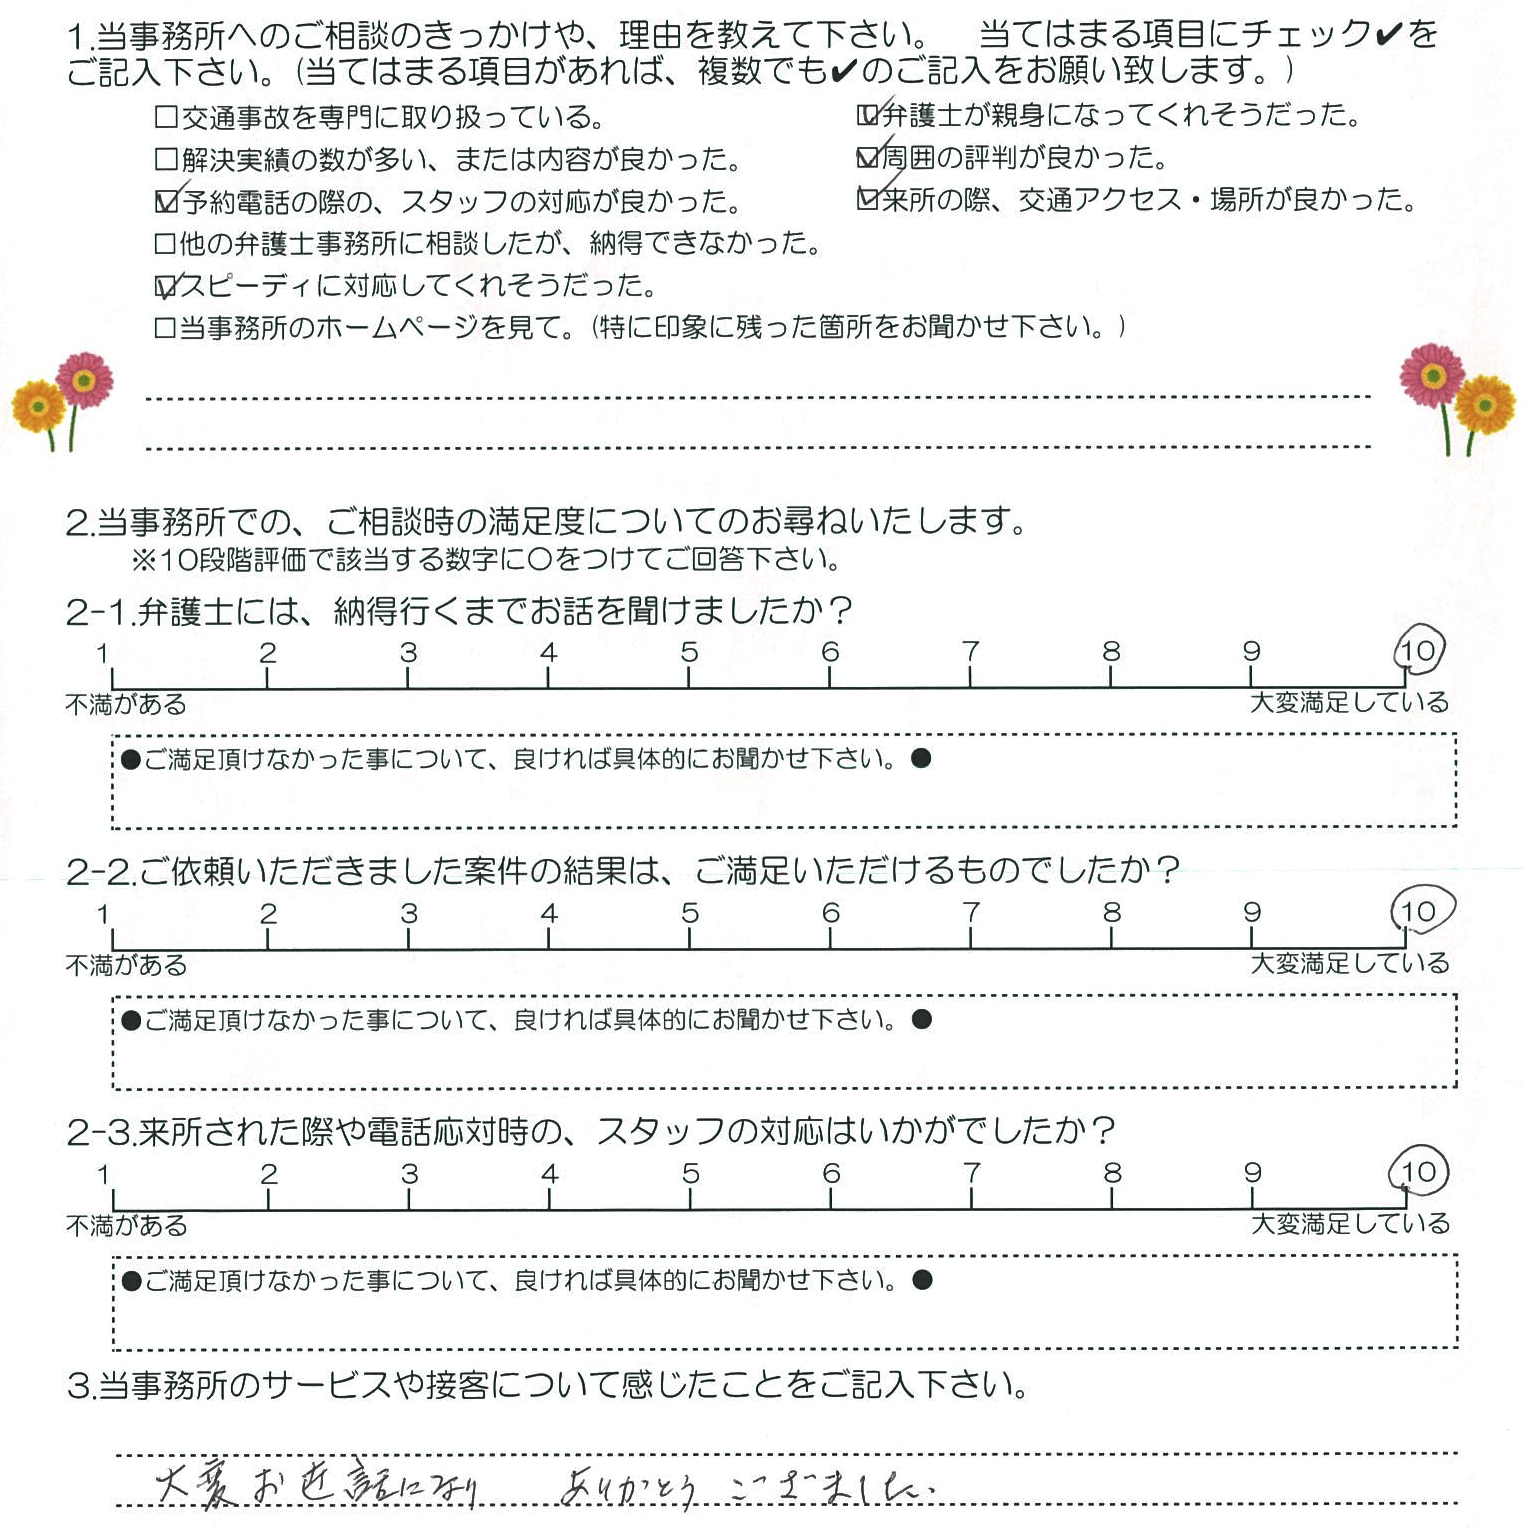 1.当事務所へのご相談のきっかけや、理由を教えて下さい。　当てはまる項目にチェック✔を
ご記入下さい。(当てはまる項目があれば、複数でも✔のご記入をお願い致します。)
□交通事故を専門に取り扱っている。
☑弁護士が親身になってくれそうだった。
□解決実績の数が多い、または内容が良かった。
☑周囲の評判が良かった。
☑予約電話の際の、スタッフの対応が良かった。
☑来所の際、交通アクセス・場所が良かった。
□他の弁護士事務所に相談したが、納得できなかった。
☑スピーディに対応してくれそうだった。
□当事務所のホームページを見て。(特に印象に残った箇所をお聞かせ下さい。)
2.当事務所での、ご相談時の満足度についてのお尋ねいたします。
※10段階評価で該当する数字に〇をつけてご回答下さい。
2-1.弁護士には、納得行くまでお話を聞けましたか？
1 2 3 4 5 6 7 8 9 10
不満がある 大変満足している
●ご満足頂けなかった事について、良ければ具体的にお聞かせ下さい。●
2-2.ご依頼いただきました案件の結果は、ご満足いただけるものでしたか？
1 2 3 4 5 6 7 8 9 10
不満がある 大変満足している
●ご満足頂けなかった事について、良ければ具体的にお聞かせ下さい。●
2-3.来所された際や電話応対時の、スタッフの対応はいかがでしたか？
1 2 3 4 5 6 7 8 9 10
不満がある 大変満足している
●ご満足頂けなかった事について、良ければ具体的にお聞かせ下さい。●
3.当事務所のサービスや接客について感じたことをご記入下さい。
大変お世話になり　ありがとうございました。